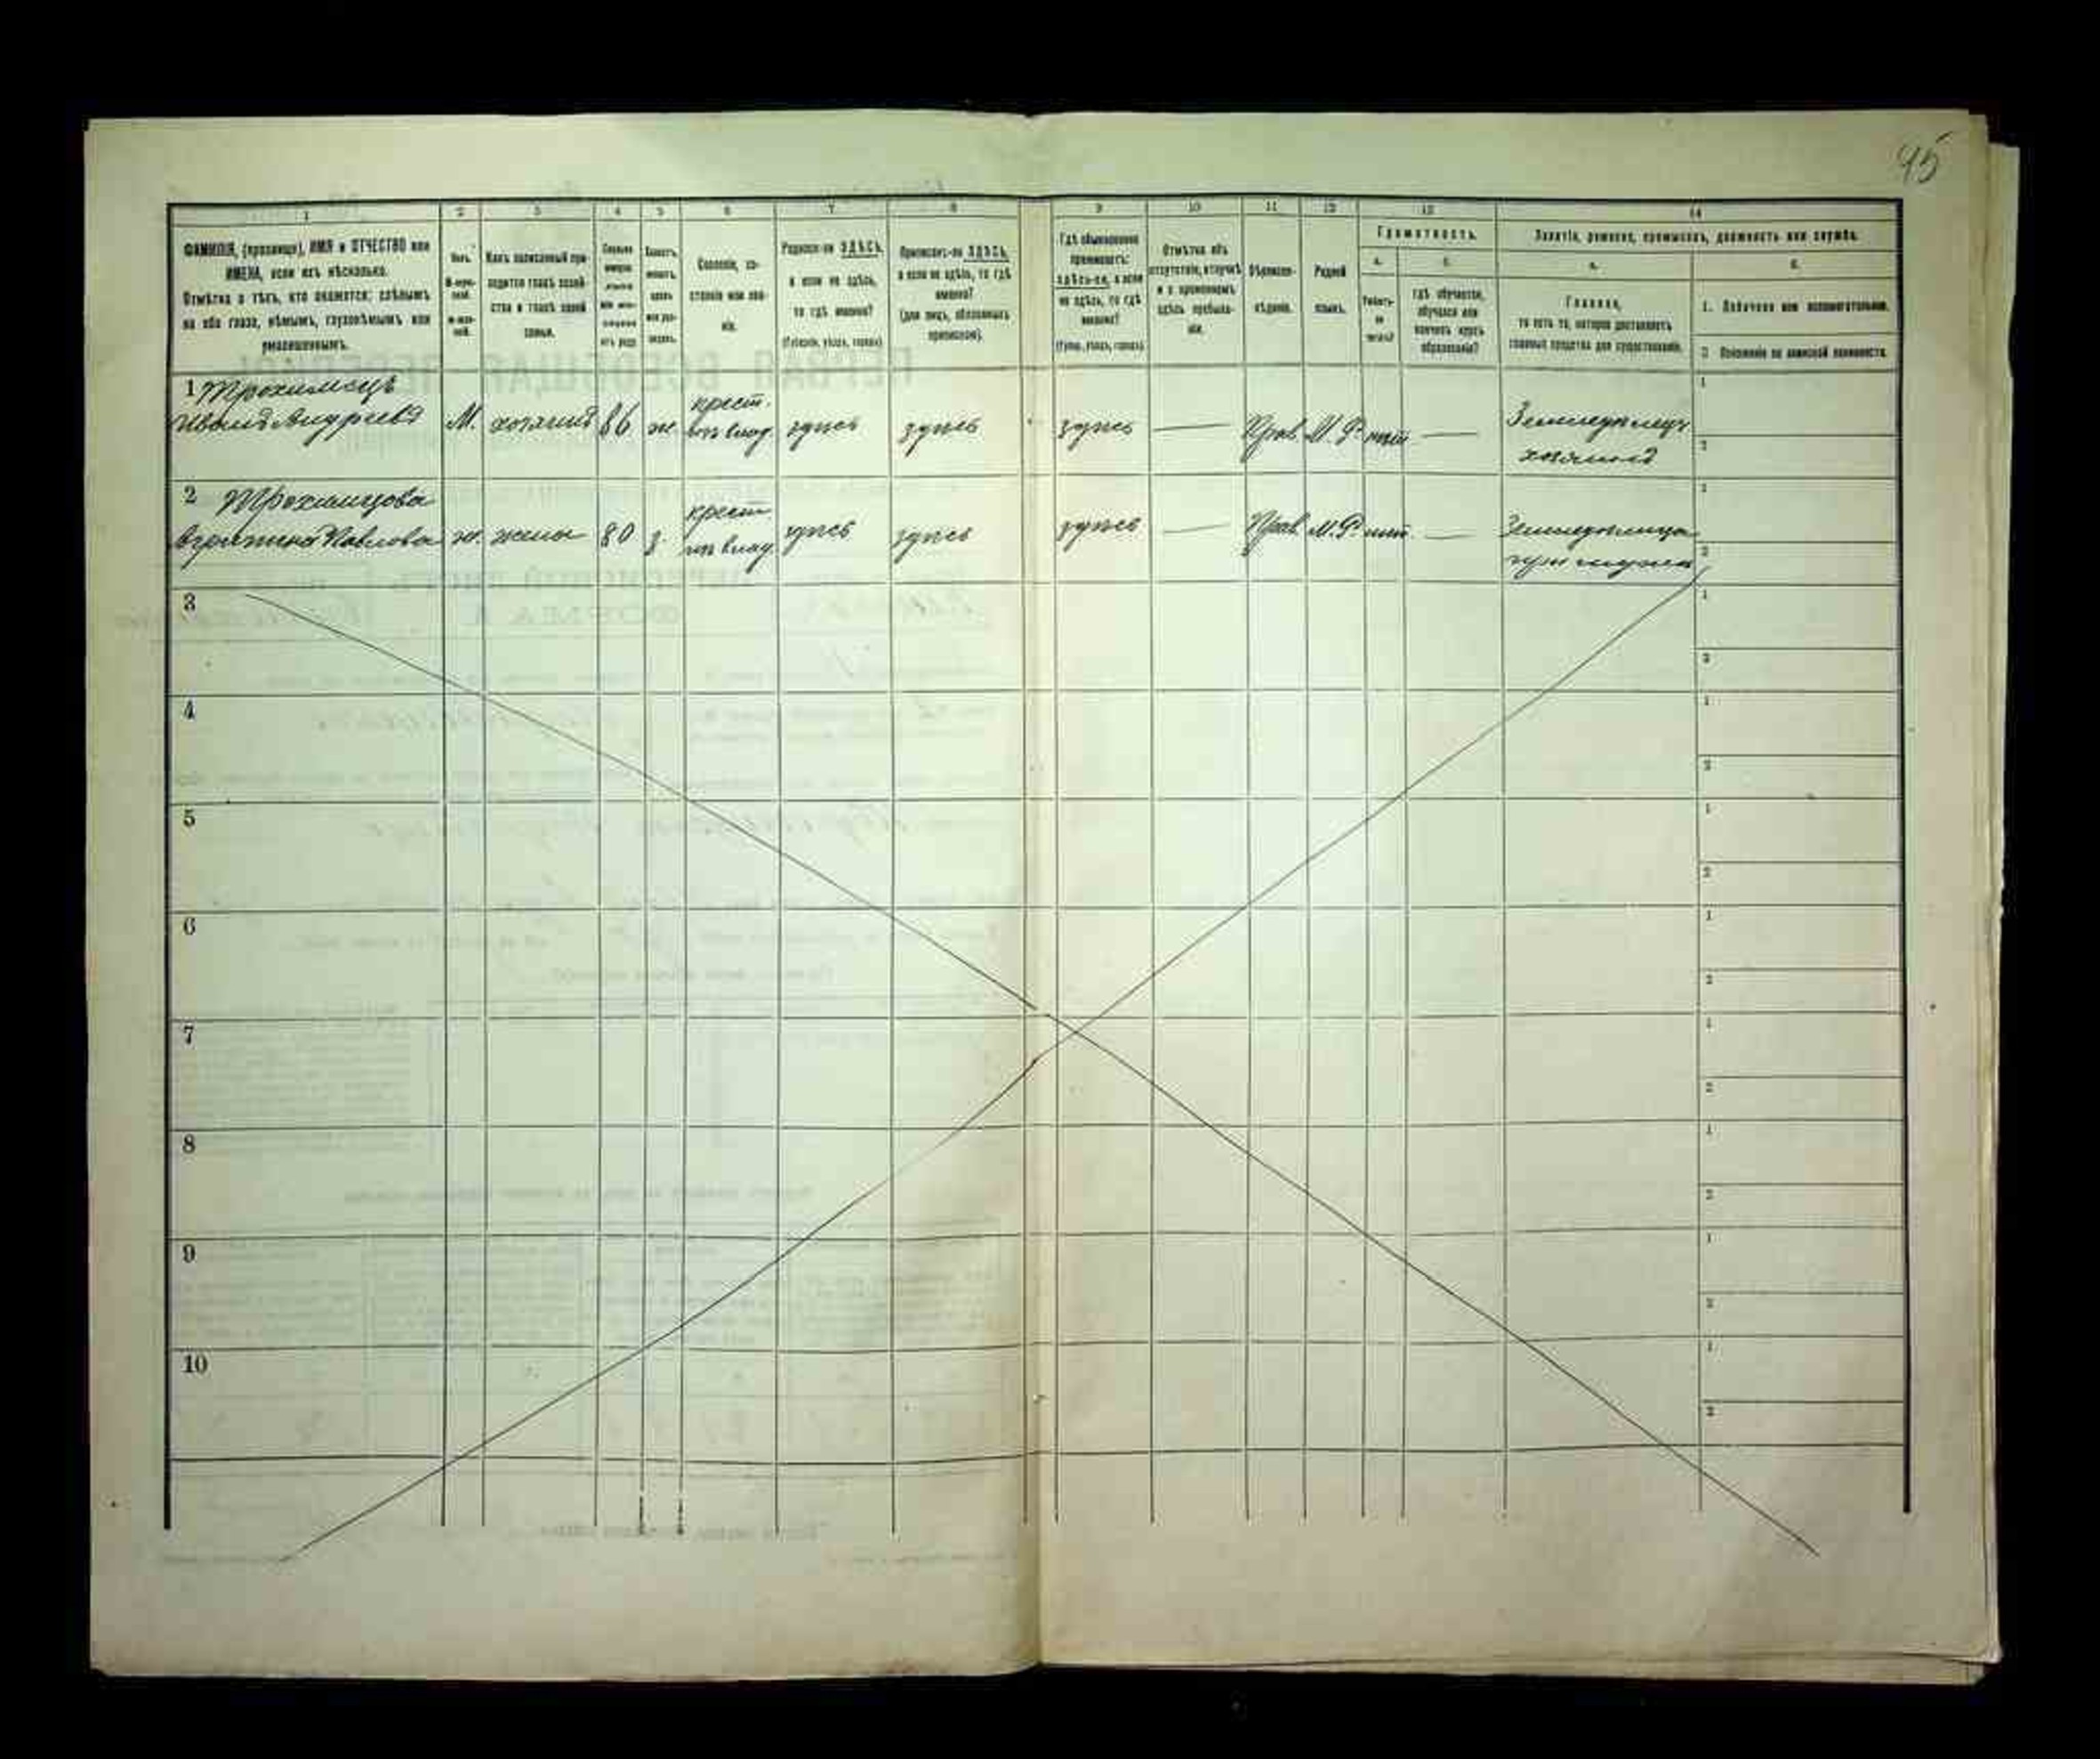 95
1 2 3 4 5 6 7 8 9 10 11 12 13 14
ФАМИЛІЯ, (прозвище), ИМЯ и ОТЧЕСТВО или
ИМЕНА, если ихъ нѣсколько.
Отмѣтка о тѣхъ, кто окажется: слѣпымъ
на оба глаза, нѣмымъ, глухонѣмымъ или
умалишеннымъ.
Полъ.
М-муж-
ской.
Ж-жен-
скій.
Какъ записанный при-
ходится главѣ хозяй-
ства и главѣ своей
семьи.
Сословіе, со-
стояніе или зва-
ніе.
Родился-ли ЗДѢСЬ,
а если не здѣсь,
то гдѣ именно?
(Губернія, уѣздъ, городъ)
Приписанъ-ли ЗДѢСЬ,
а если не здѣсь, то гдѣ
именно?
(для лицъ, обязанныхъ
припискою).
Гдѣ обыкновенно
проживаетъ:
здѣсь-ли, а если
не здѣсь, то гдѣ
именно?
(Губер., уѣздъ, городъ)
Отмѣтка объ
отсутствіи, отлучкѣ
и о временномъ
здѣсь пребыва-
ніи.
Вѣроиспо-
вѣданіе.
Родной
языкъ.
Грамотность.
а.
Умѣетъ-
ли
читать?
б.
Гдѣ обучается,
обучался или
кончилъ курсъ
образованія?
Занятіе, ремесло, промыселъ, должность или служба.
а.
Главное,
то есть то, которое доставляетъ
главныя средства для существованія.
б.
1. Побочное или вспомогательное.
2. Положеніе по воинской повинности.
1 Трохимецъ
Иванъ Андреевъ М. хозяинъ 86 ж. крест. изъ влад. здѣсь здѣсь здѣсь — Прав. М. Р. нѣтъ — Земледѣлец хозяинъ
2 Трохимцова
Павлова ж. жена 80 з. крест. изъ влад. здѣсь здѣсь здѣсь — Прав. М. Р. нѣтъ — Земледѣлица при мужѣ
3
4
5
6
7
8
9
10